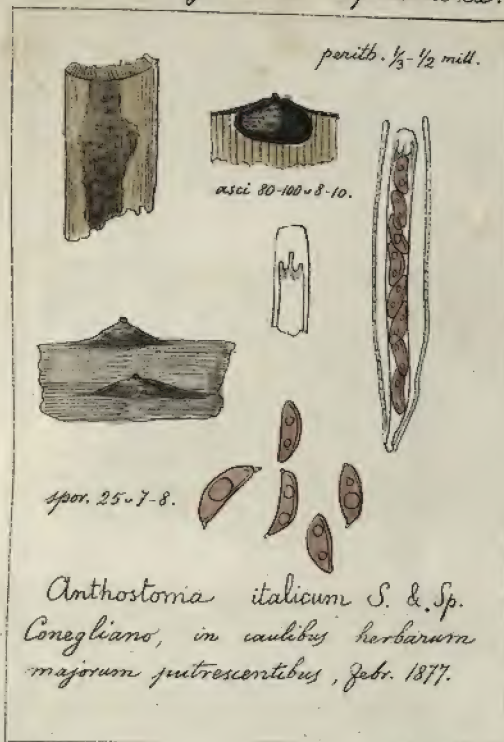 perith. 1/3-1/2 mill.
asci 80-100 v 8-10.
spor. 25 v 7-8.
Anthostoma italicum S. & Sp.
Conegliano, in caulibus herbarum
majorum putrescentibus, Febr. 1877.